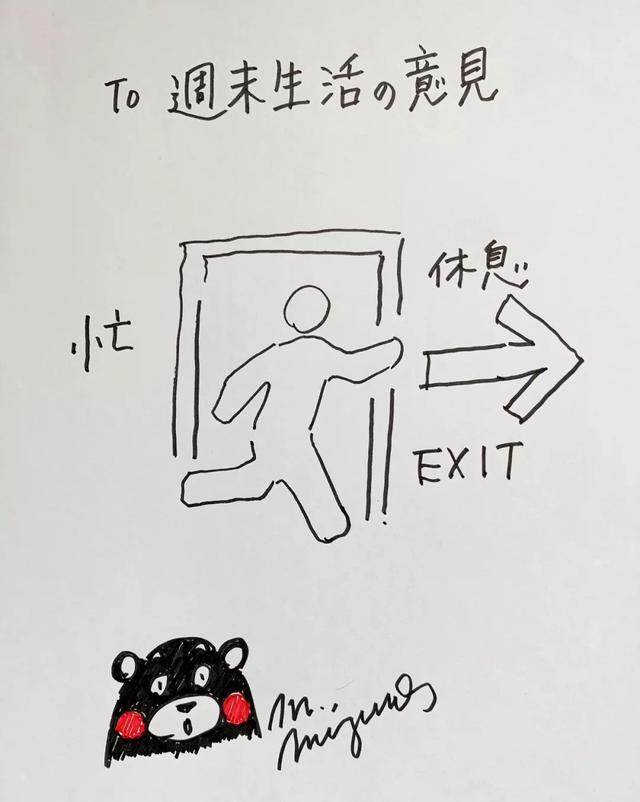 To 週末生活の意見
休息
忙
EXIT
m. mizuno